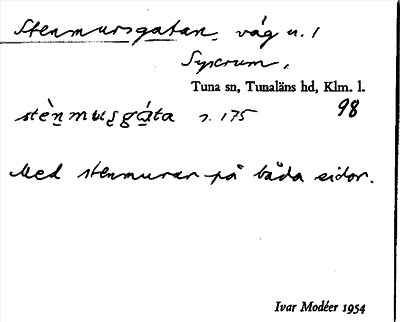 Stenmursgatan, väg n. l
Syscrum,
Tuna sn, Tunaläns hd, Klm. l.
98
stèn̲muʂgá̲ta s. 175
Med stenmurar på båda sidor.
Ivar Modéer 1954